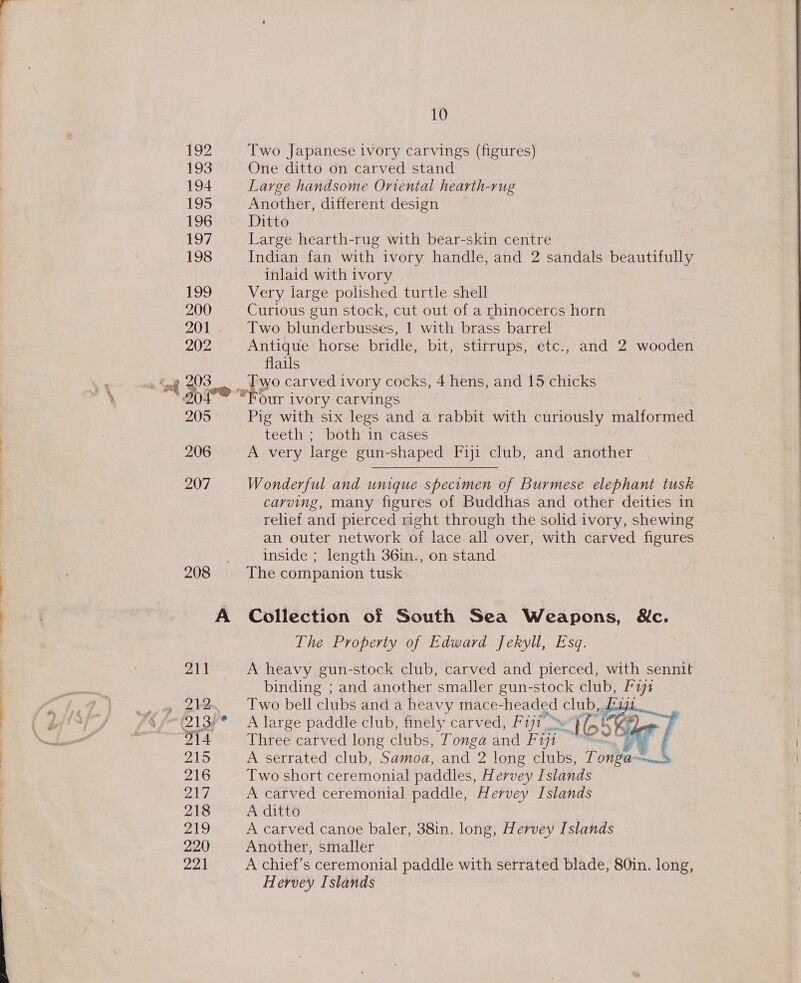 10
192 Two Japanese ivory carvings (figures)
193 One ditto on carved stand
194 Large handsome Oriental hearth-rug
195 Another, different design
196 Ditto
197 Large hearth-rug with bear-skin centre
198 Indian fan with ivory handle, and 2 sandals beautifully
inlaid with ivory
199 Very large polished turtle shell
200 Curious gun stock, cut out of a rhinoceros horn
201 Two blunderbusses, 1 with brass barrel
202 Antique horse bridle, bit, stirrups, etc., and 2 wooden
flails
203 Two carved ivory cocks, 4 hens, and 15 chicks
204 Four ivory carvings
205 Pig with six legs and a rabbit with curiously malformed
teeth ; both in cases
206 A very large gun-shaped Fiji club, and another
207 Wonderful and unique specimen of Burmese elephant tusk
carving, many figures of Buddhas and other deities in
relief and pierced right through the solid ivory, shewing
an outer network of lace all over, with carved figures
inside ; length 36in., on stand
208 The companion tusk
A Collection of South Sea Weapons, &c.
The Property of Edward Jekyll, Esq.
211 A heavy gun-stock club, carved and pierced, with sennit
binding ; and another smaller gun-stock club, Fiji
212 Two bell clubs and a heavy mace-headed club, Fiji
213 A large paddle club, finely carved, Fiji
214 Three carved long clubs, Tonga and Fiji
215 A serrated club, Samoa, and 2 long clubs, Tonga
216 Two short ceremonial paddles, Hervey Islands
217 A carved ceremonial paddle, Hervey Islands
218 A ditto
219 A carved canoe baler, 38in. long, Hervey Islands
220 Another, smaller
221 A chief's ceremonial paddle with serrated blade, 80in. long,
Hervey Islands